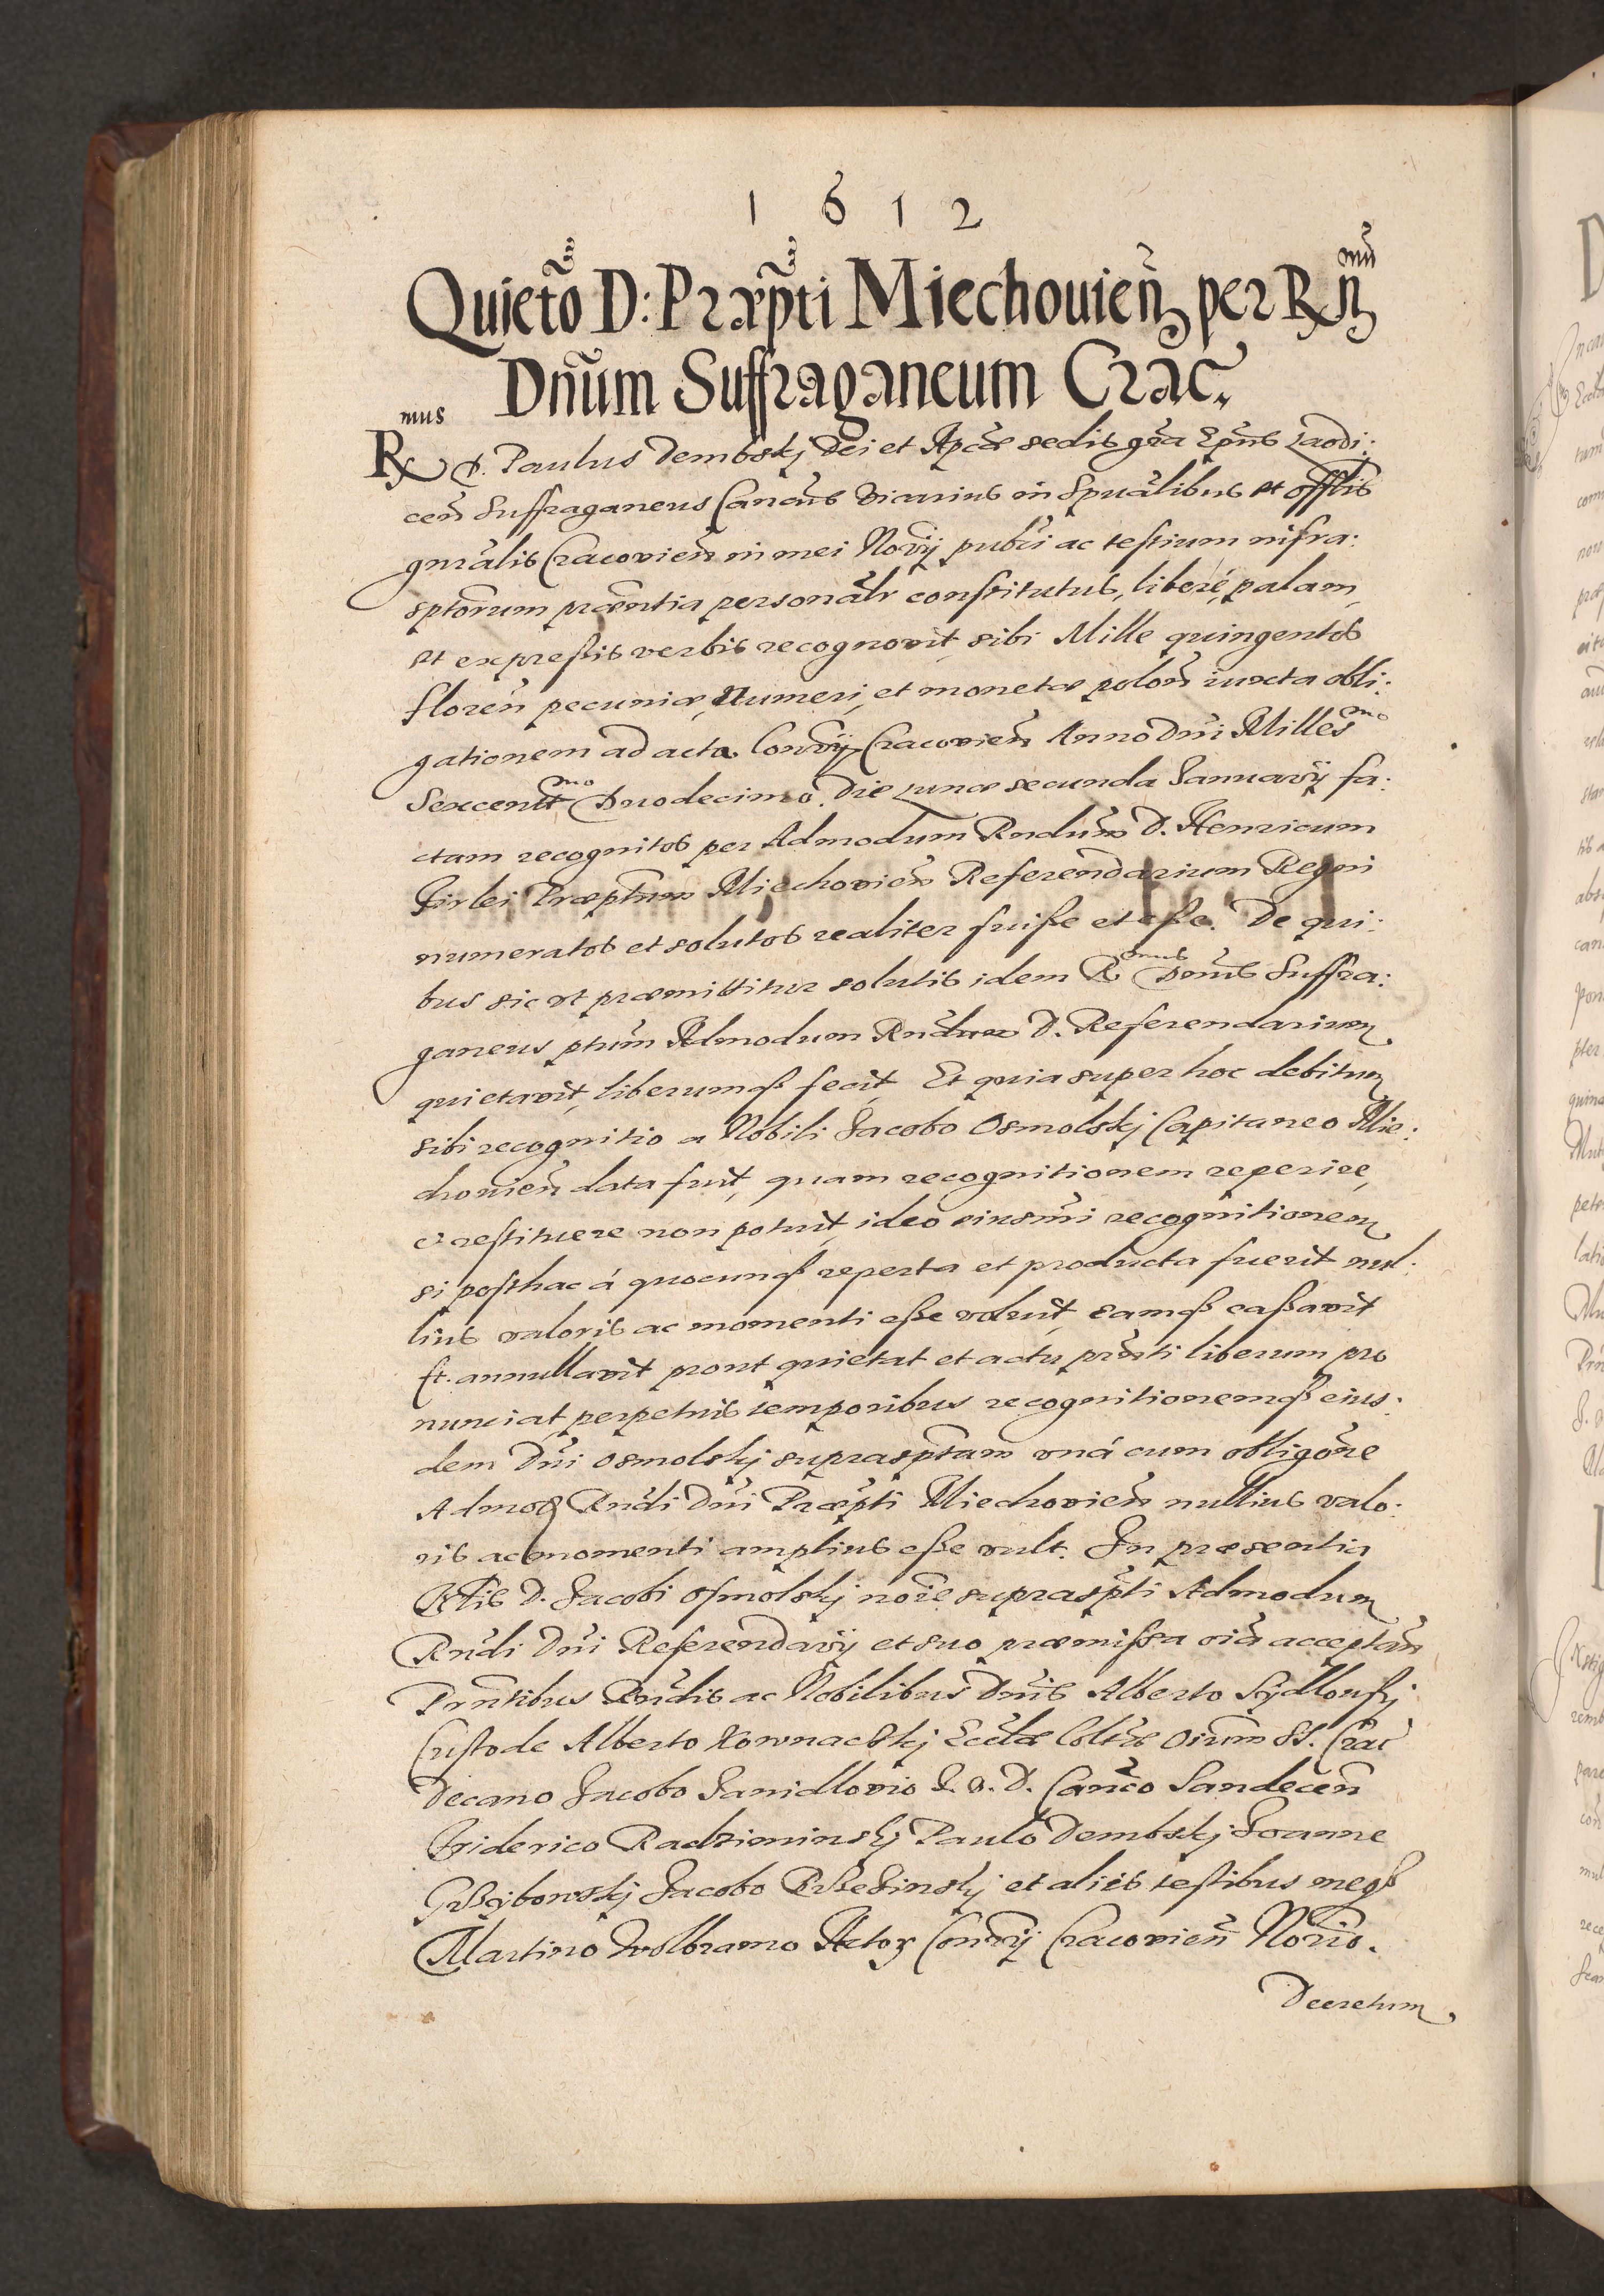 1612
Quietõ D: Præp̃ti Miechouieñ per R mũ
Dñum Suffraganeum Crac.
Rmus D. Paulus Dembskj Dei et Ap̃cæ sedis gr̃a Ep̃us Laodi:
ceñ Suffraganeus Canc̃us Vicarius in Sp̃ualibus et offlis
gnr̃alis Cracovieñ in mei Norij pub̃ci ac testium infra:
sptorum præñtia personalr̃ constitutus, liberè, palam,
et expressis verbis recognovit, sibi Mille quingentos
floreñ pecuniæ, Numeri, et monetæ poloñ iuxta obli:
gationem ad acta Conrij Cracovieñ Anno Dñi Milles̃mo
Sexcent̃mo Duodecimo. Die Lunæ secunda Januarij fa:
ctam recognitos per Admodum Rnduм D. Henricum
Firlei Præp̃tum Miechovieñ Referendarium Regni
numeratos et solutos realiter fuiße et eße. De qui:
bus sic ut præmittitur solutis idem Rmus Dñus Suffra:
ganeus p̃tum Admodum Rndum D. Referendarium
quietavit, liberumqß fecit. Et quia super hoc debitum
sibi recognitio a Nobili Jacobo Osmolskj Capitaneo Mie:
chovieñ data fuit, quam recognitionem reperire,
et restituere non potuit, ideo eiusm̃i recognitionem
si posthac á quocunqß reperta et producta fuerit nul:
lius valoris ac momenti eße voluit, eamqß caßavit
et annullavit prout quietat et actu p̃nti liberum pro
nunciat, perpetuis temporibus recognitionemqß eius:
dem Dñi Osmolskj suprasp̃tam uná cum obligoñe
Admod Rndi Dñi Præp̃ti Miechovieñ nullius valo:
ris ac momenti amplius eße vult. In præsentia
D. Jacobi Osmolskj noĩe suprasp̃ti Admodum
Rndi Dñi Referendarij et suo præmißa oĩa acceptañ
Prñtibus Rndis ac Nobilibus Dñis Alberto Sydlouskj
Custode Alberto Kownackj Ecclæ Coll̃tæ Oĩum SS. Crac
Decano Jacobo Janidlovio J. V. D. Canc̃o Sandeceñ
Friderico Radziminskj Paulo Dembskj Joanne
Grzÿbowskj Jacobo et aliis testibus meqß
Martino Wolbramo Actor Conrij Cracovieñ Norio.
Decretum